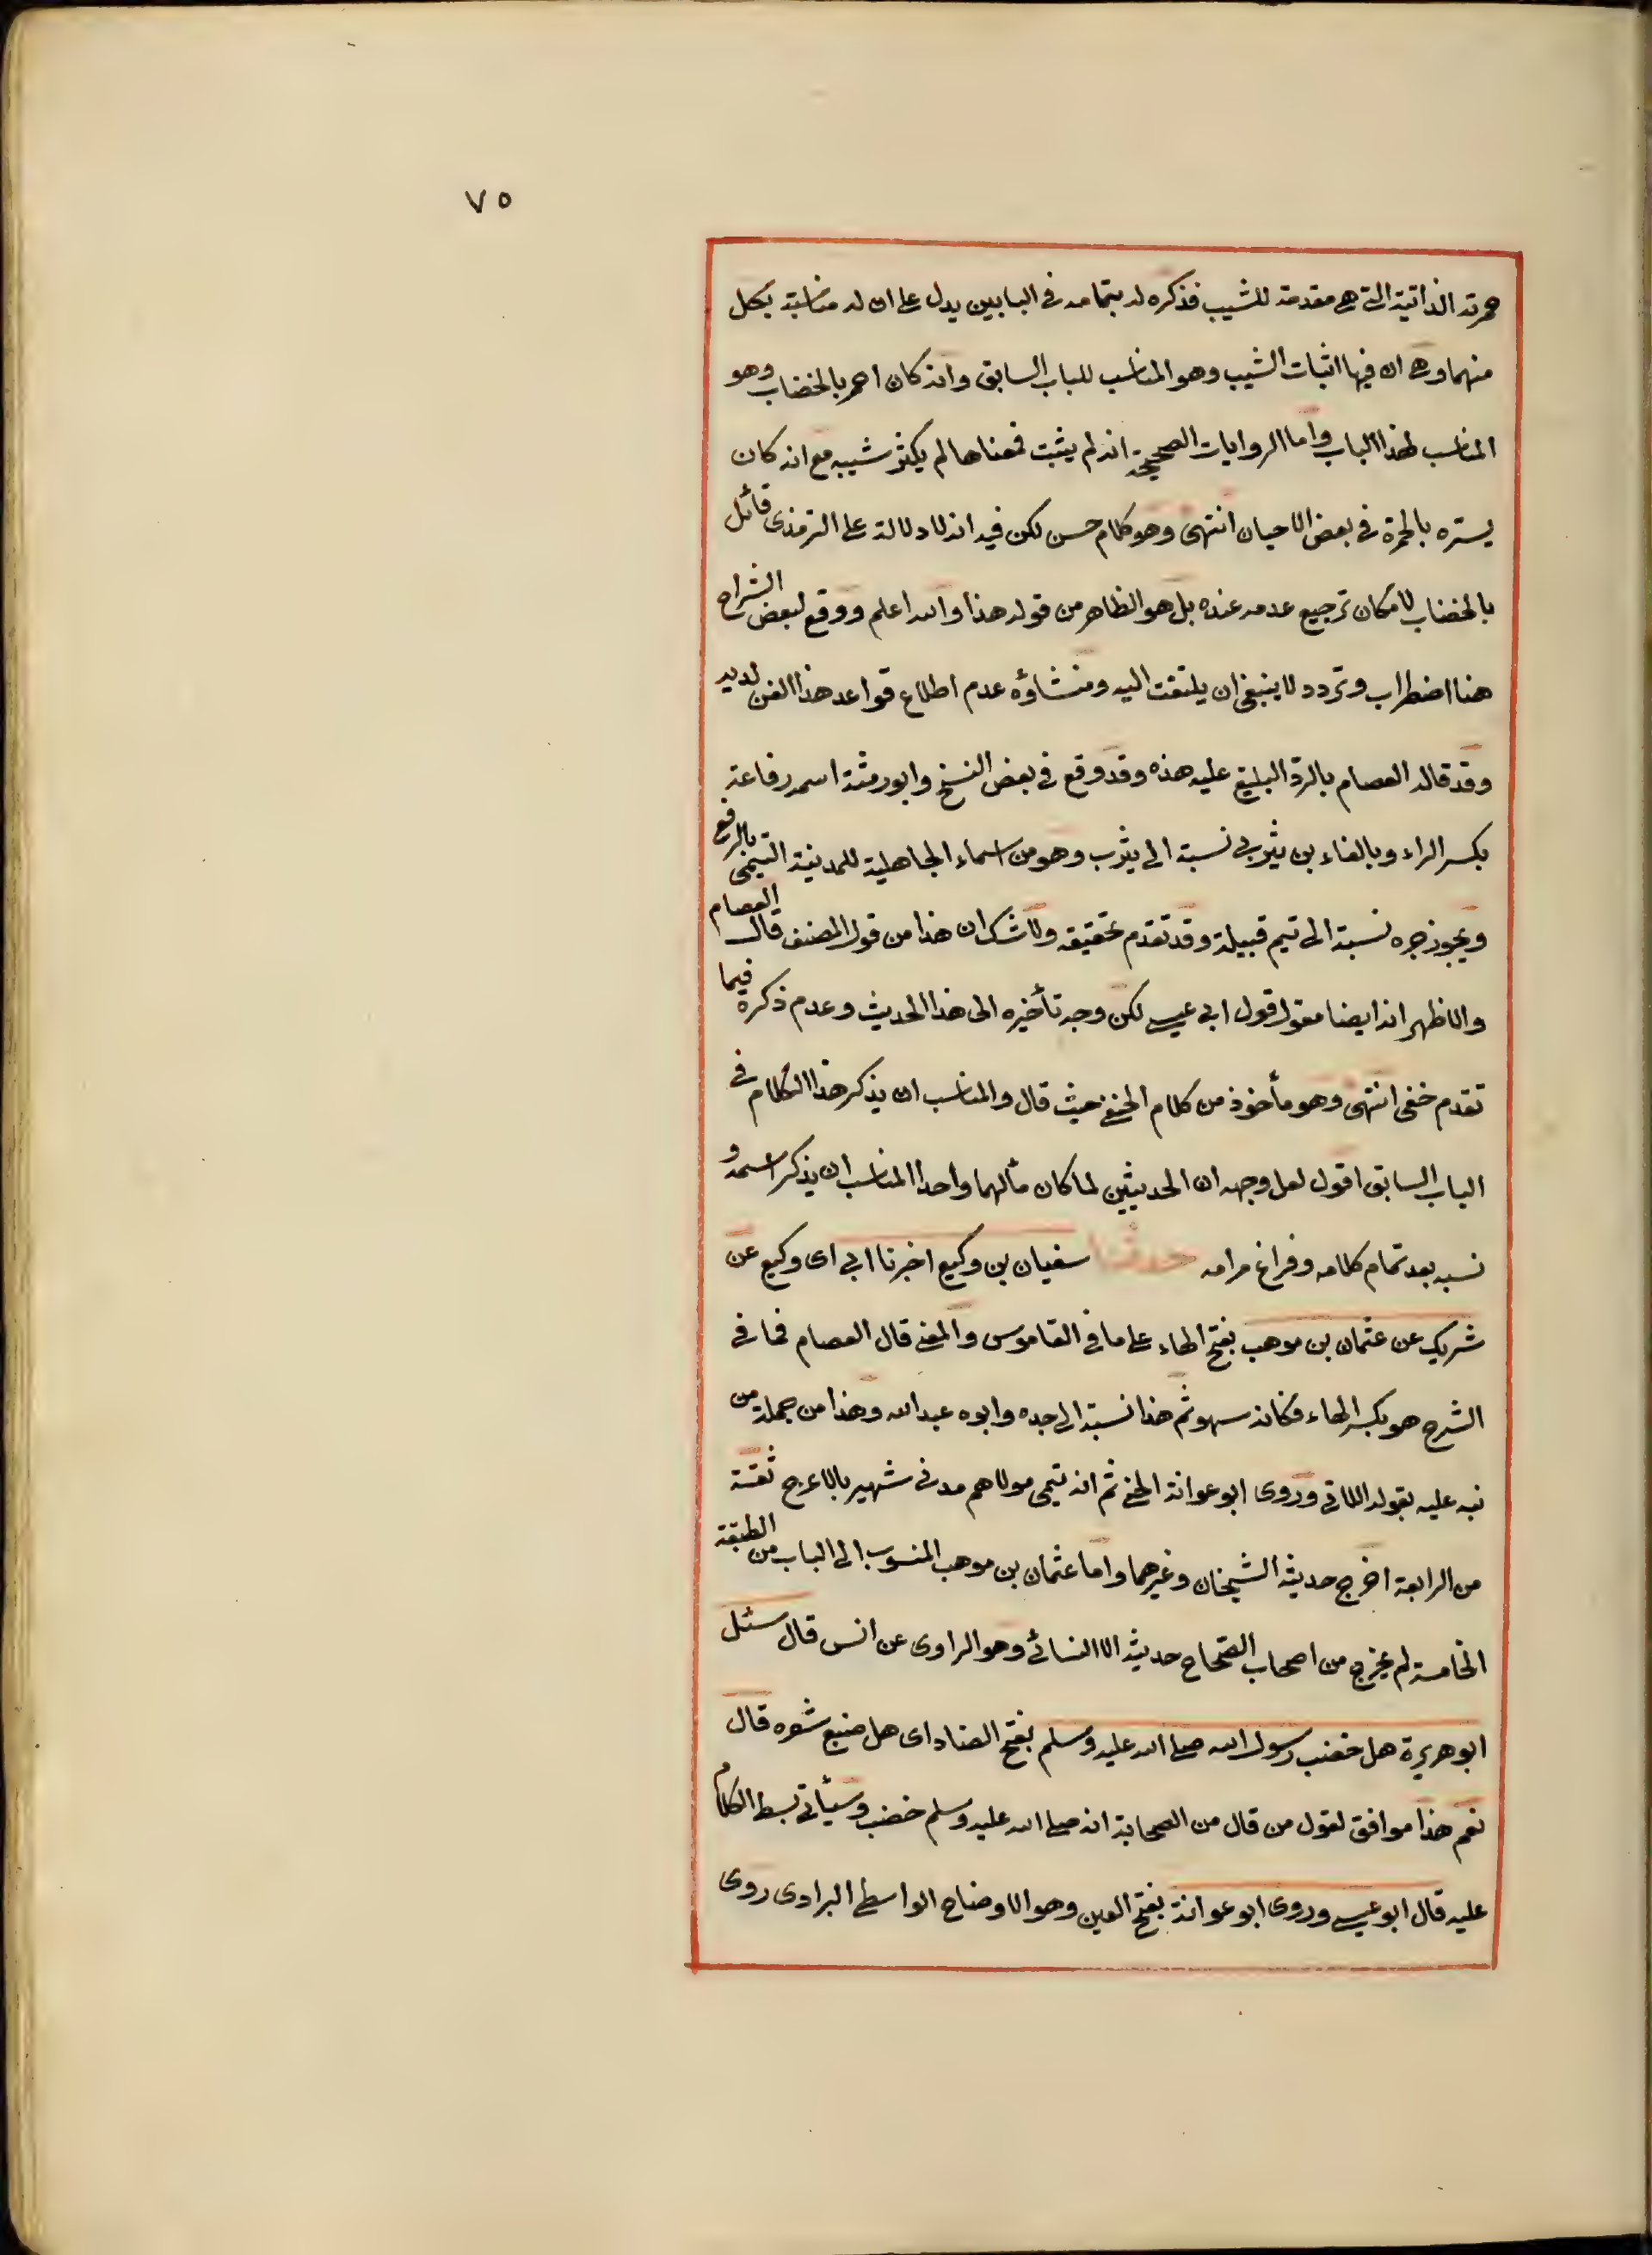 ٧٥
حمرته الذاتية التي هي مقدمة للشيب فذكره له بتمامه في البابين يدل على ان له مناسبة بكل
منهما وهي ان فيها اثبات الشيب وهو المناسب للباب السابق وانه كان احمر بالخضاب وهو
المناسب لهذا الباب واما الروايات الصحيحة انه لم يثبت فمعناها لم يكثر شيبه مع انه كان
يستره بالحمرة في بعض الاحيان انتهى وهو كلام حسن لكن فيه انه لا دلالة على الترمذى قائل
بالخضاب لامكان ترجيع عدمه عنده بل هو الظاهر من قوله هذا والله اعلم ووقع لبعض الشراح
هنا اضطراب وتردد لا ينبغي ان يلتفت اليه ومنشاؤه عدم اطلاع قواعد هذا الفن لديه
وقد قاله العصام بالردّ البليغ عليه هذه وقد وقع في بعض النسخ وابو رمثة اسمه رفاعة
بكسر الراء وبالفاء بن يثربي نسبة الى يثرب وهو من اسماء الجاهلية للمدينة التيمى بالرفع
ويجوز جره نسبة الى تيم قبيلة وقد تقدم تحقيقه ولا شك ان هذا من قول المصنف قال العصام
والاظهر انه ايضا مقول قول ابي عيسى لكن وجه تأخيره الى هذا الحديث وعدم ذكره فيما
تقدم خفى انتهى وهو مأخوذ من كلام الحنفى حيث قال والمناسب ان يذكر هذا الكلام في
الباب السابق اقول لعل وجهه ان الحديثين لما كان مألهما واحدا المناسب ان يذكر اسمه و
نسبه بعد تمام كلامه وفراغ مرامه حدثنا سفيان بن وكيع اخبرنا ابي اى وكيع عن
شريك عن عثمان بن موهب بفتح الهاء على ما في القاموس والمغنى قال العصام فما في
الشرح هو بكسر الهاء فكانه سهو ثم هذا نسبة الى جده وابوه عبد الله وهذا من جملة من
نبه عليه بقوله الاتى وروى ابو عوانة الخ ثم انه تيمى مولاهم مدنى شهير بالاعرج ثقة
من الرابعة اخرج حديثه الشيخان وغيرهما واما عثمان بن موهب المنسوب الى الباب من الطبقة
الخامسة لم يخرج من اصحاب الصّحاح حديثه الا النسائى وهو الراوى عن انس قال سئل
ابو هريرة هل خضب رسول الله صلى الله عليه وسلم بفتح الضاد اى هل صبغ شعره قال
نعم هذا موافق لقول من قال من الصحابة انه صلى الله عليه وسلم خضب وسيأتى بسط الكلام
عليه قال ابو عيسى وروى ابو عوانة بفتح العين وهو الاوضاح الواسطى البرادى روى